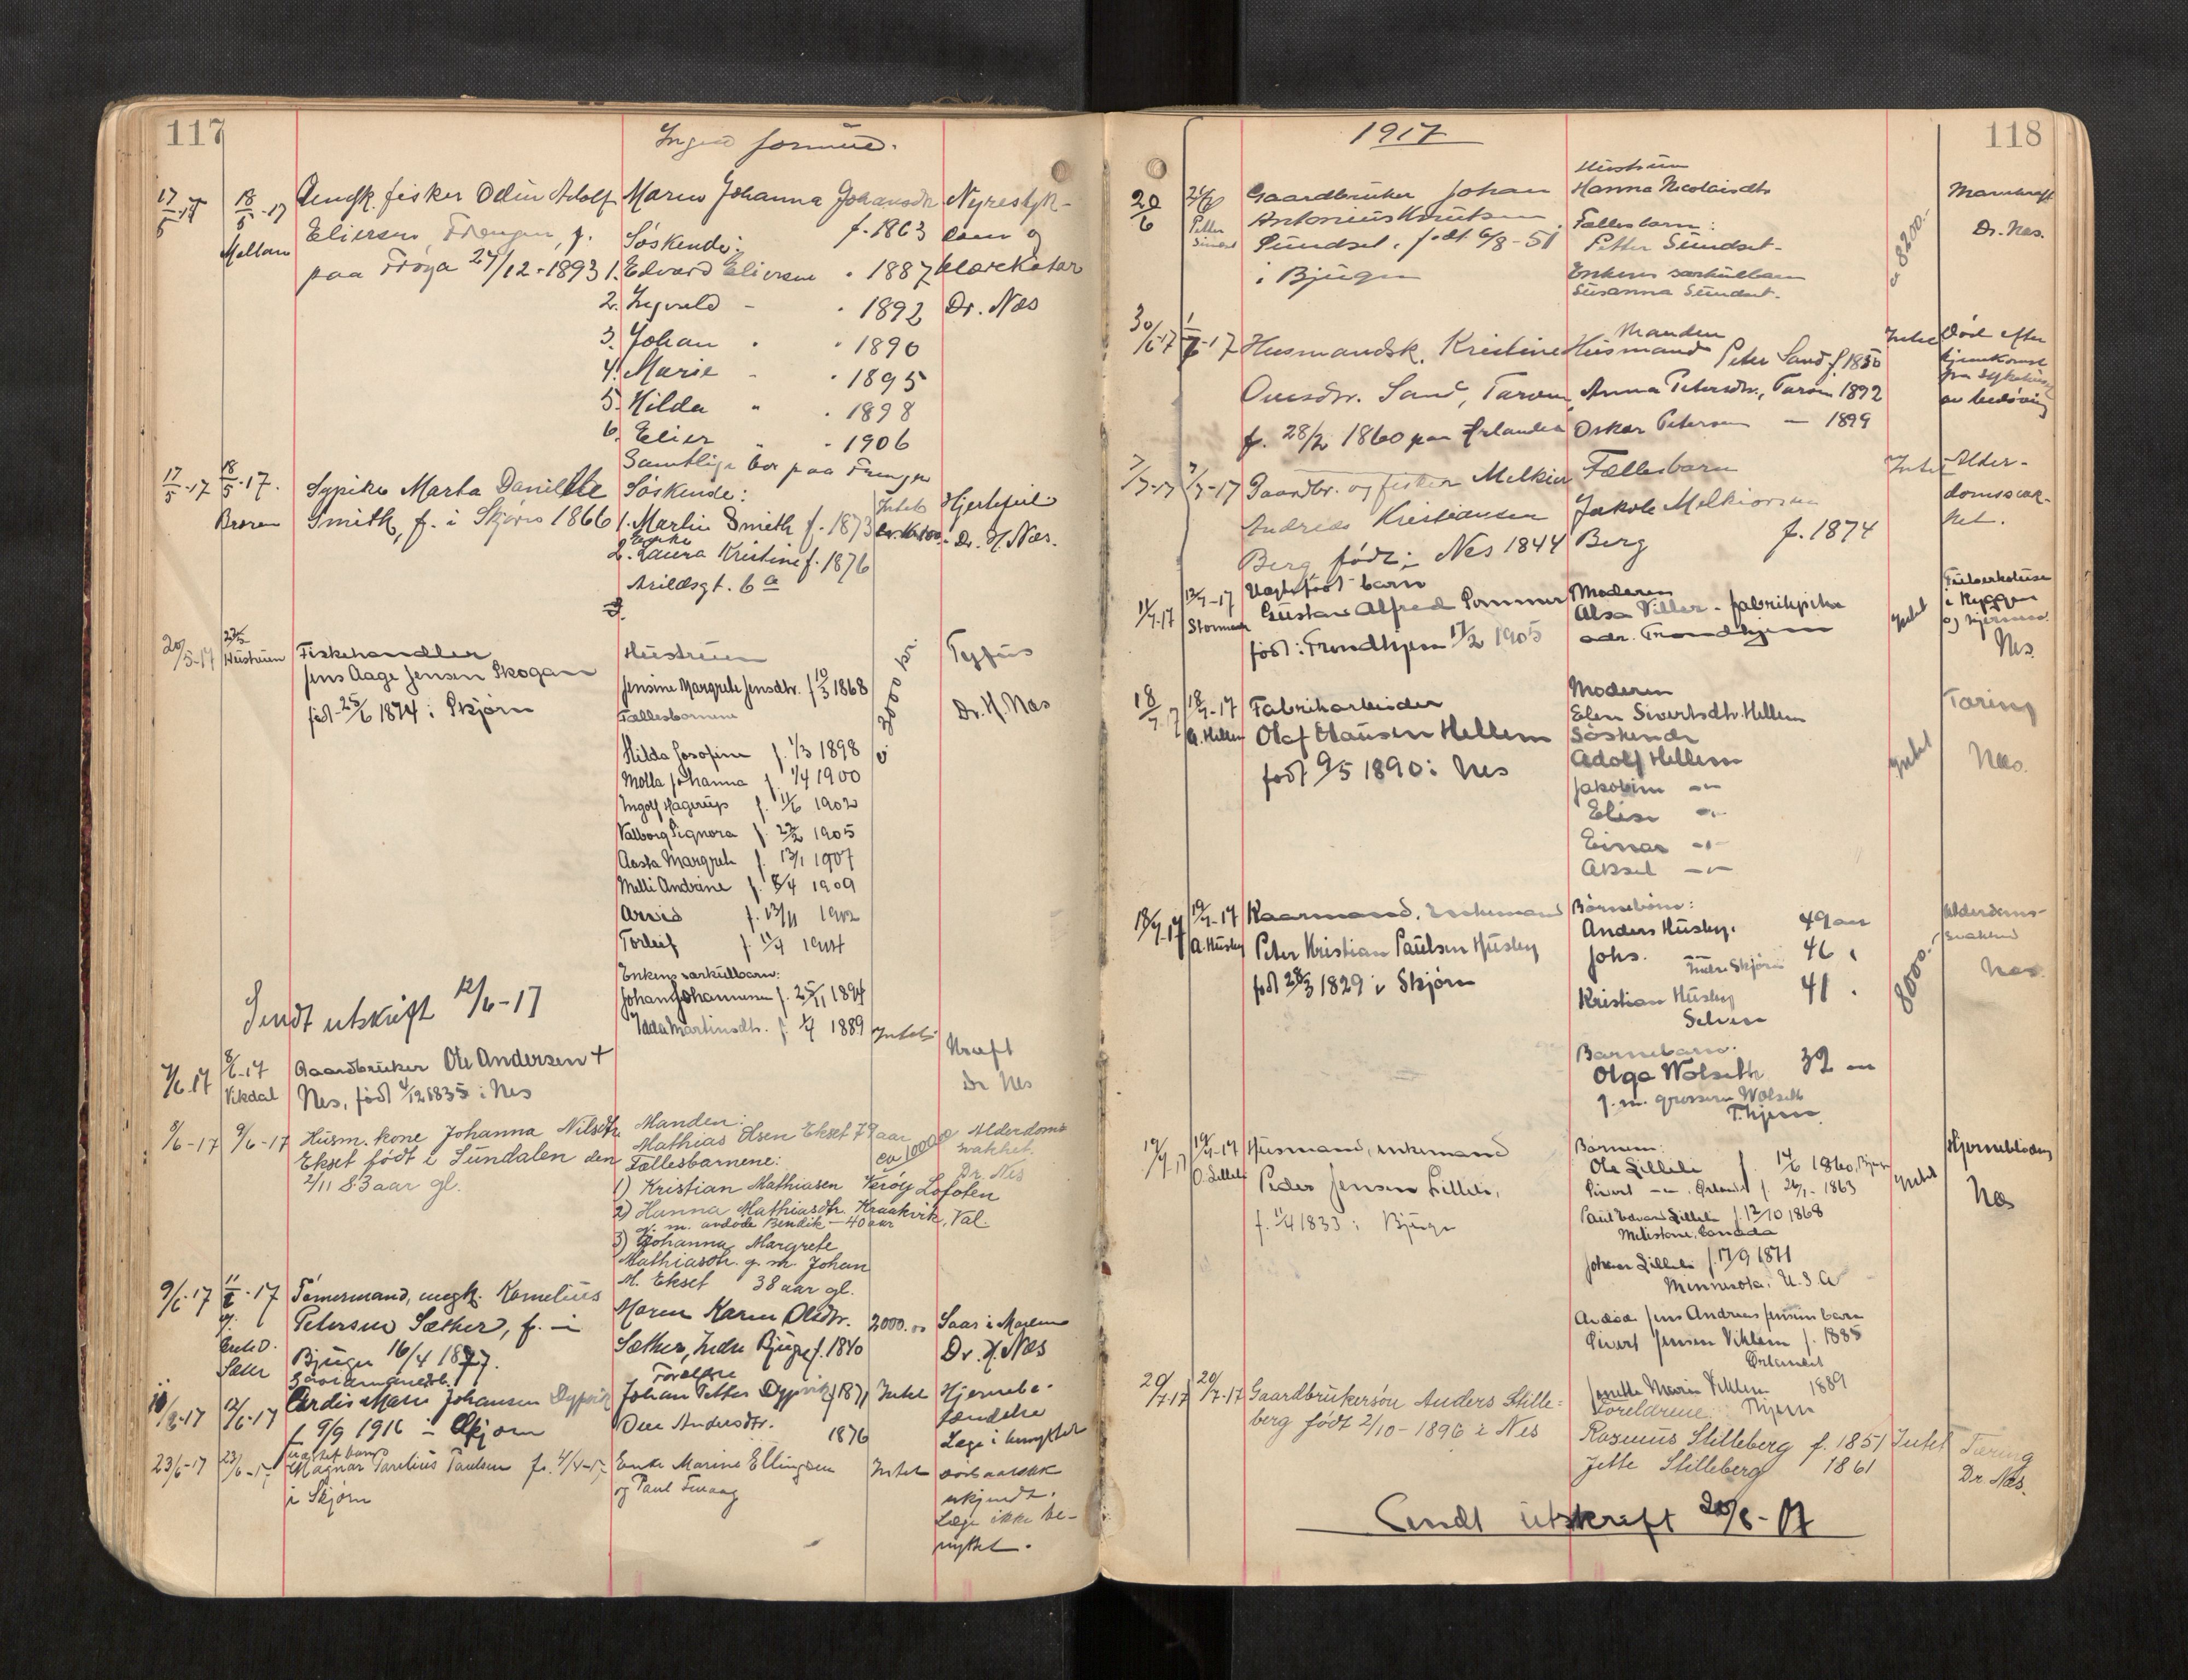 117
Ingen formue.
17/5-17
18/5-17
Ungk. fisker Odin Adolf
Maren Johanna Johansdtr
Nyrestyk-
Eliersen, Frengen, f.
f. 1863
Mellem
paa Frøya 24/12-1893
Søskende:
1. Edvard Eliersen " 1887
2. Ingvald - " 1892
Dr. Næs
3. Johan " " 1890
4. Marie - " 1895
5. Hilda " " 1898
6. Elier " - 1906
Samtlige bor paa Frengen
17/5-17
18/5-17.
Sypike Marta Danielle
Søskende:
Intet
Hjertefeil
Broren
Smith, f. i Skjørn 1866
1. Martin Smith f. 1873
Dr. H. Næs.
Enke
2. Laura Kristine f. 1876
Arildsgt. 6 a
20/5-17
Hustruen
Fiskehandler
Hustruen
Tyfus
Jens Aage Jensen Skogan
Jensine Margrete Jensdtr. f 19/3 1868
3000 kr.
født 25/6 1874 i Skjørn
Fællesbarnene
Dr. H. Næs
Hilda Josofine f. 1/3 1898
Molla Johanna f. 1/4 1900
Ingolf Hagerup f. 11/6 1902
Valborg Signora f. 22/2 1905
Aasta Margrete f. 13/1 1907
Milli Andrine f. 8/4 1909
Arvid f. 13/11 1912
Torleif f. 11/9 1914
Enkens særkulbarn:
Johan Johannesen f. 25/11 1894
Sendt utskrift 12/6-17
Ida Martinsdtr. f. 1/9 1889
Intet
7/6 17
8/6-17
Gaardbruker Ole Andersen +
Kræft
Vikdal
Nes, født 4/12 1835 i Nes
Dr Nes
8/6-17
9/6-17
Husm. kone Johanna Nilsdtr.
Manden:
Ekset født i Sundalen den
Mathias Olsen Ekset 79 aar
Alderdoms
2/11 83 aar gl.
Fællesbarnene:
svakhet.
Dr. Nes
1) Kristian Mathiasen Værøy Lofoten
2) Hanna Mathiasdtr. Kraakvik, Val.
g. m. avdøde Bendik - 40 aar
3) Johanna Margrete
Mathiasdtr. g. m. Johan
M. Ekset 38 aar gl.
9/6-17
11/6-17
Tømmermand, ungk. Kornelius
Maren Karen Olsdtr.
2000.00
Saar i Maven
Petersen Sæther, f. i
Sæther, Indre Bjugn f. 1840
Dr. H. Næs
Bjugn 16/4 1877.
Foreldre
12/6-17
Gaardmandsb.
Ordis Marie Johansen Dypvik
Johan Petter Dypvik f 1871
Intet
Hjernebe-
f. 9/9 1916 i Skjørn
Andersdtr.
1876
tændelse
Læge i benyttet
23/6-17
23/6-17
Magnar Parelius Paulsen
Enke Marine Ellingsen
Intet
dødsaarsak
i Skjørn
og Paul
ukjendt.
Læge ikke be-
nyttet.
118
1917
20/6
Petter
Gaardbruker Johan
Hustrun
Hanna Nicolaisdtr
Antonius Knutsen
Fællesbarn:
Dr. Nes.
Sundset, født 6/8-51
Petter Sundset-
8200.-
i Bjugn
Enkens særkulbarn
Susanna Sundset.
30/6-17
Husmandsk. Kristine
Manden
Husmand Peter Sand f 1850
Intet
Død efter
hjemkomst
fra sykehus
Ovesdtr. Sand, Tarven
Anna Petersdtr., Tarven 1892
f. 28/2 1860 paa Ørlandet
Oskar Petersen - 1899
7/7-17
7/7-17
Gaardbr. og fisker Melkior
Fællesbarn
Intet
Alder-
Andreas Kristiansen
Jakob Melkiorsen
domssvak-
Berg født i Nes 1844
Berg f. 1874
het.
11/7-17
12/7-17
barn
Moderen
Tuberkulose
Gustav Alfred Sommer
Alsa Viller - fabrikpike
i Ryggen
født i Trondhjem 17/2 1905
adr. Trondhjem
Intet
Nes
18/7 17
18/7-17
Fabrikarbeider
Moderen
Tæring
A. Hellem
Olaf Hansen Hellem
Elen Sivertsdtr. Hellem
født 9/5 1890 i Nes
Søskende
Adolf Hellem
Intet
Næs.
Jakobine -"-
Elise -"-
Einar -"-
Aksel -"-
18/7-17
19/7-17
Kaarmand, enkemand
Børnebørn:
Alderdoms-
A. Husby
Peter Kristian Paulsen Husby
Anders Husby. 49 aar
svakhed
født 28/3 1829 i Skjørn
Johs. -"- Indre Skjørn 46 "
8000.-
Næs.
Kristian Husby 41 "
Selven
Barnebarn:
Olga Wolseth 32 -"-
g. m. grosserer Wolseth
T.hjem
19/7 17
19/7-17
Husmand, enkemand
Børnene:
Hjerneblødning
O. Lilleli
Peder Jensen Lilleli,
Ole Lilleli f. 14/6 1860, Bjugn
f. 11/4 1833 i Bjugn
Sivert -"- Ørlandet f. 26/1- 1863
Intet
Næs
Paul Edvard Lilleli f. 12/10 1868
Milestone, Canada
Johan Lilleli f. 17/9 1871
Minnesota. U.S.A
Avdøde Jens Andreas Jensens barn
Sivert Jensen Viklem f. 1885
Ørlandet
Josette Marie Viklem 1889
T.hjem
20/7-17
20/7-17
Gaardbrukersøn Anders Stille-
Foreldrene:
berg født 2/10-1896 i Nes
Rasmus Stilleberg f. 1851
Intet
Tæring
Jette Stilleberg 1861
Dr. Næs.
Sendt utskrift 20/8-17